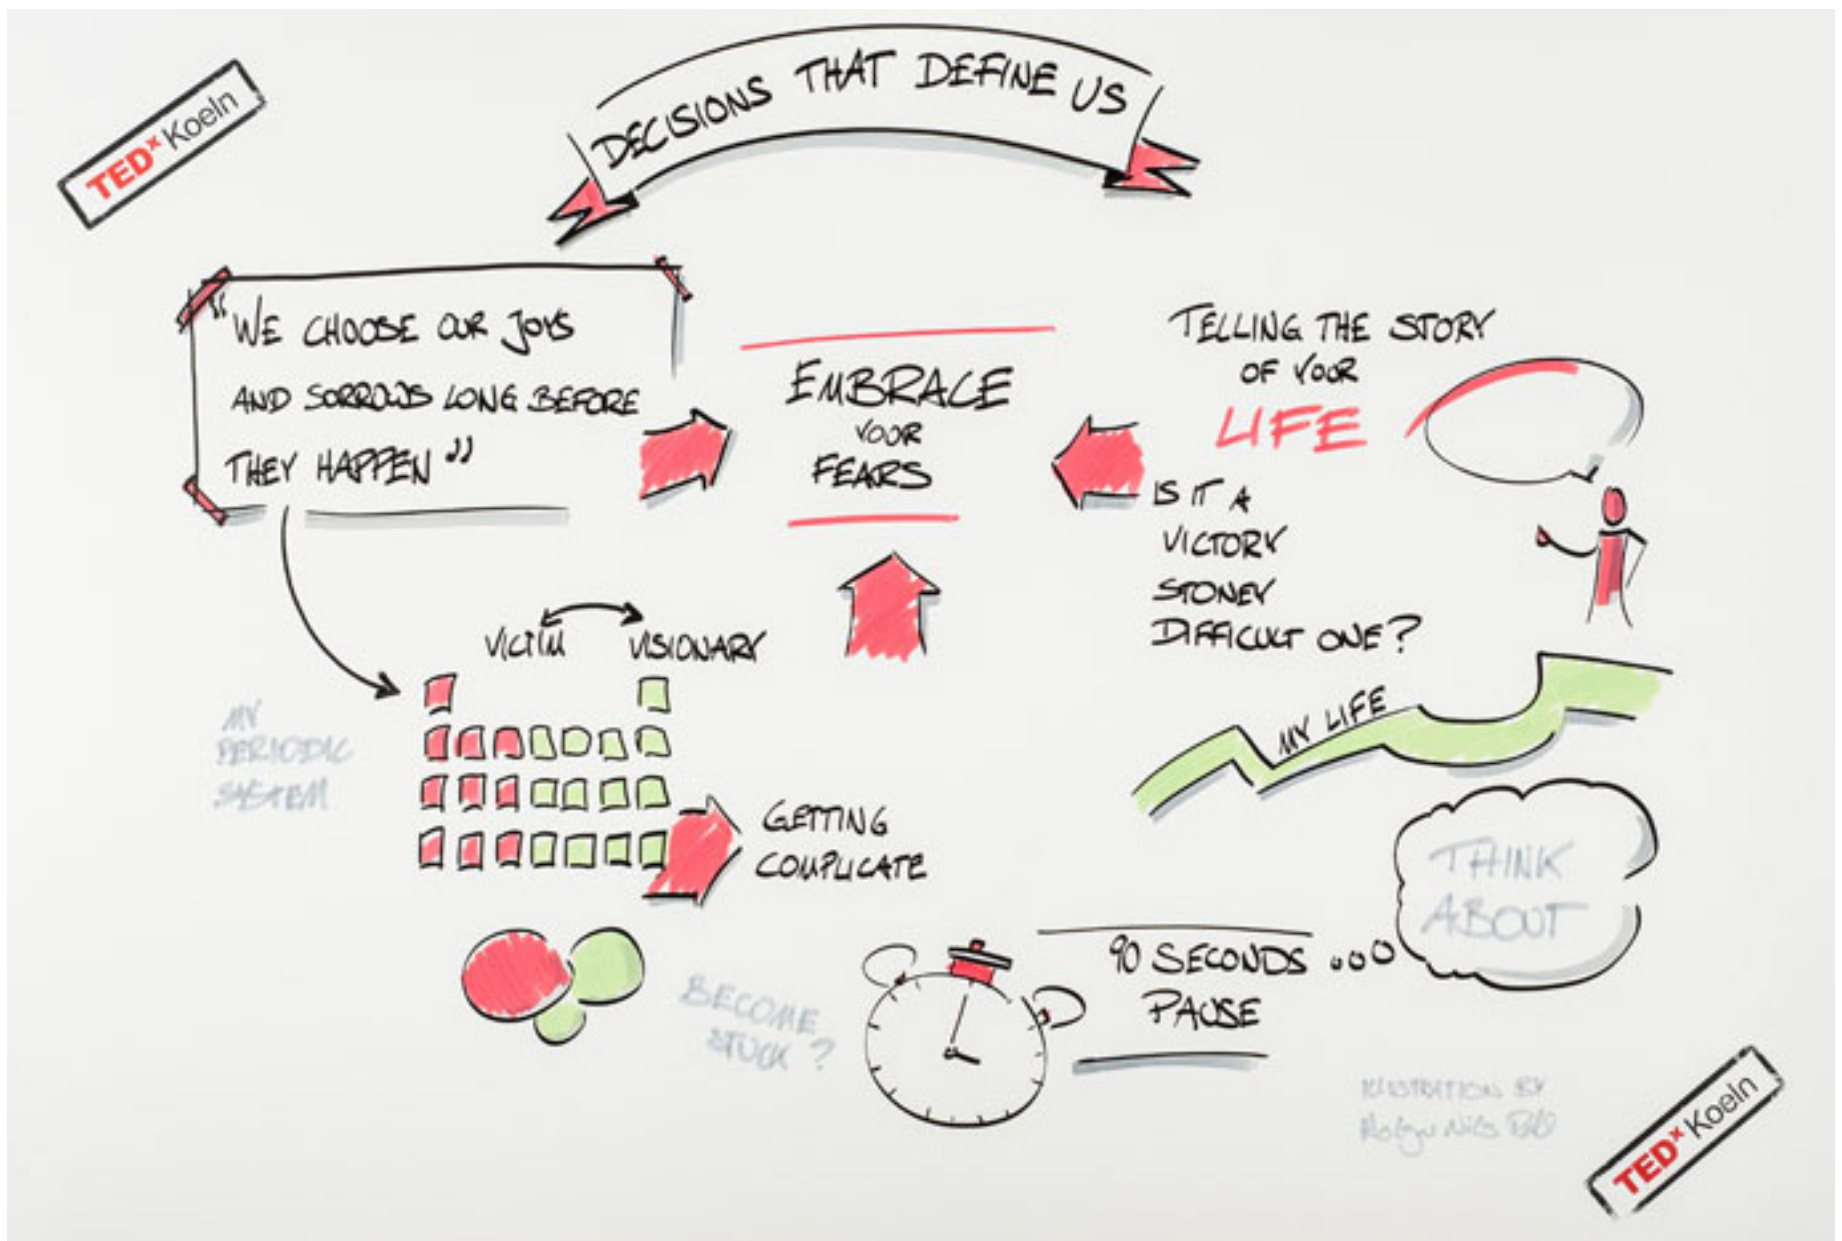 TEDx Koeln
DECISIONS THAT DEFINE US
"WE CHOOSE OUR JOYS
AND SORROWS LONG BEFORE
THEY HAPPEN"
EMBRACE
YOUR
FEARS
TELLING THE STORY
OF YOUR
LIFE
IS IT A
VICTORY
STONEY
DIFFICULT ONE?
VICTIM VISIONARY
MY
PERIODIC
SYSTEM
MY LIFE
GETTING
COMPLICATE
THINK
ABOUT
90 SECONDS
PAUSE
BECOME
STUCK?
ILLUSTRATION BY
TEDx Koeln